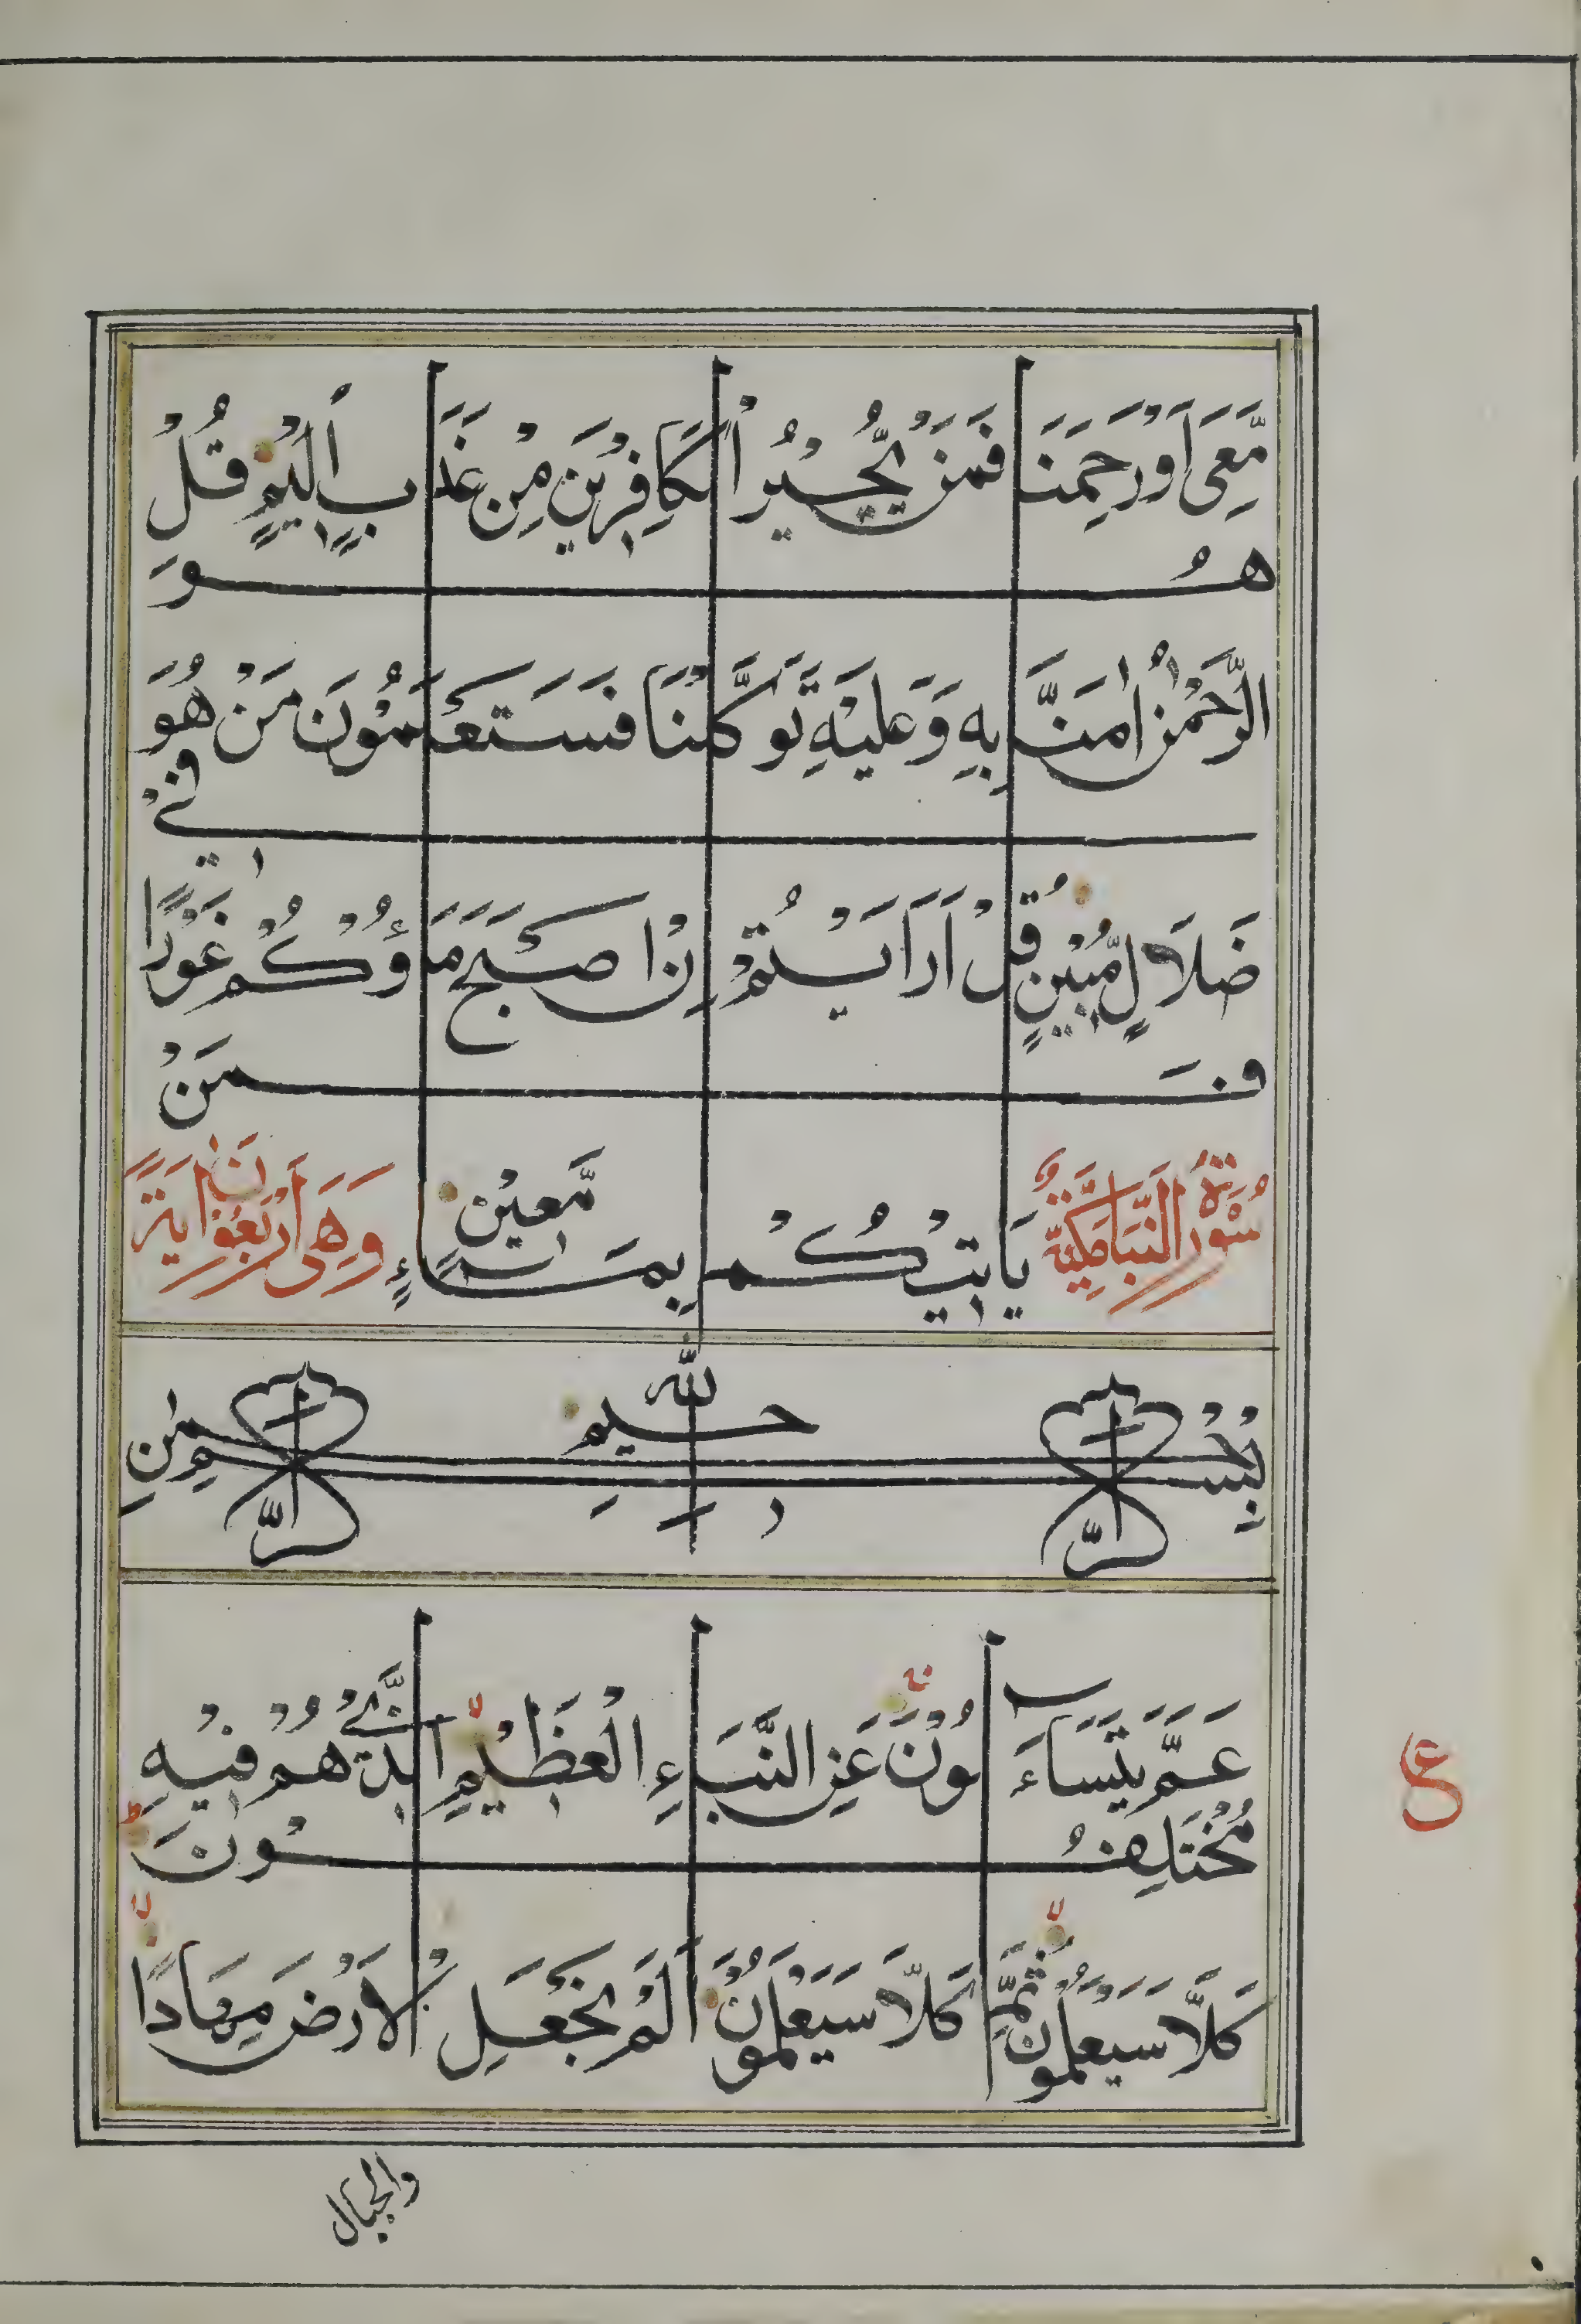 مَّعِىَ اَوْ رَحِمَنَا فَمَنْ يُّجِيْرُ الْكَافِرِيْنَ مِنْ عَذَابٍ اَلِيْمٍ قُلْ
هُوَ
الرَّحْمٰنُ اٰمَنَّا بِهٖ وَعَلَيْهِ تَوَكَّلْنَا فَسَتَعْلَمُوْنَ مَنْ هُوَ
فِيْ
ضَلَالٍ مُّبِيْنٍ قُلْ اَرَاَيْتُمْ اِنْ اَصْبَحَ مَاؤُكُمْ غَوْرًا
فَمَنْ
سُوْرَةُ النَّبَا مَكِّيَّةٌ
يَاتِيْكُمْ بِمَاءٍ مَّعِيْنٍ
وَهِىَ اَرْبَعُوْنَ اٰيَةً
بِسْمِ اللّٰهِ الرَّحْمٰنِ الرَّحِيمِ
عَمَّ يَتَسَاءَلُوْنَ عَنِ النَّبَاءِ الْعَظِيْمِ الَّذِيْ هُمْ فِيْهِ
مُخْتَلِفُوْنَ
كَلَّا سَيَعْلَمُوْنَ ثُمَّ كَلَّا سَيَعْلَمُوْنَ اَلَمْ نَجْعَلِ الْاَرْضَ مِهَادًا
ع
والجبال